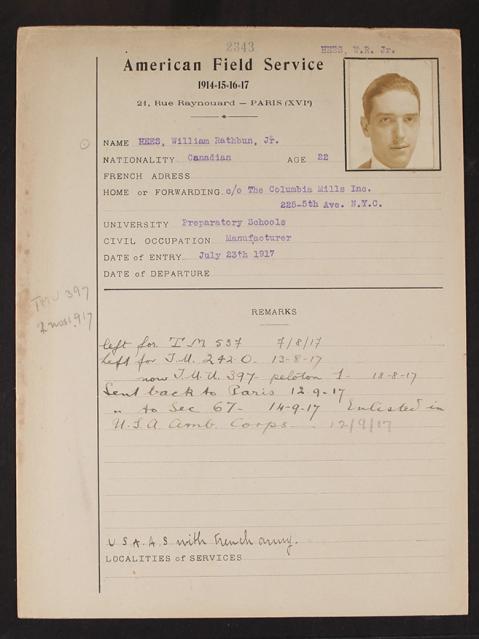 2343
HEES, W.R. Jr.
American Field Service
1914-15-16-17
21, Rue Raynouard — PARIS (XVIe)
NAME HEES, William Rathbun, Jr.
NATIONALITY Canadian AGE 22
FRENCH ADRESS
HOME or FORWARDING. c/o The Columbia Mills Inc.
225-5th Ave. N.Y.C.
UNIVERSITY Preparatory Schools
CIVIL OCCUPATION Manufacturer
DATE of ENTRY July 23th 1917
DATE of DEPARTURE
TMU 397
REMARKS
left for T M 537 7/8/17
Left for T.U. 242.0. 13-8-17
now T.M.U. 397 peloton 1 - 18-8-17
Sent back to Paris 12-9-17
" to Sec 67- 14-9-17 Enlisted in
U.S.A. Amb. Corps - 12/9/17
U S A. A. S with French army.
LOCALITIES of SERVICES